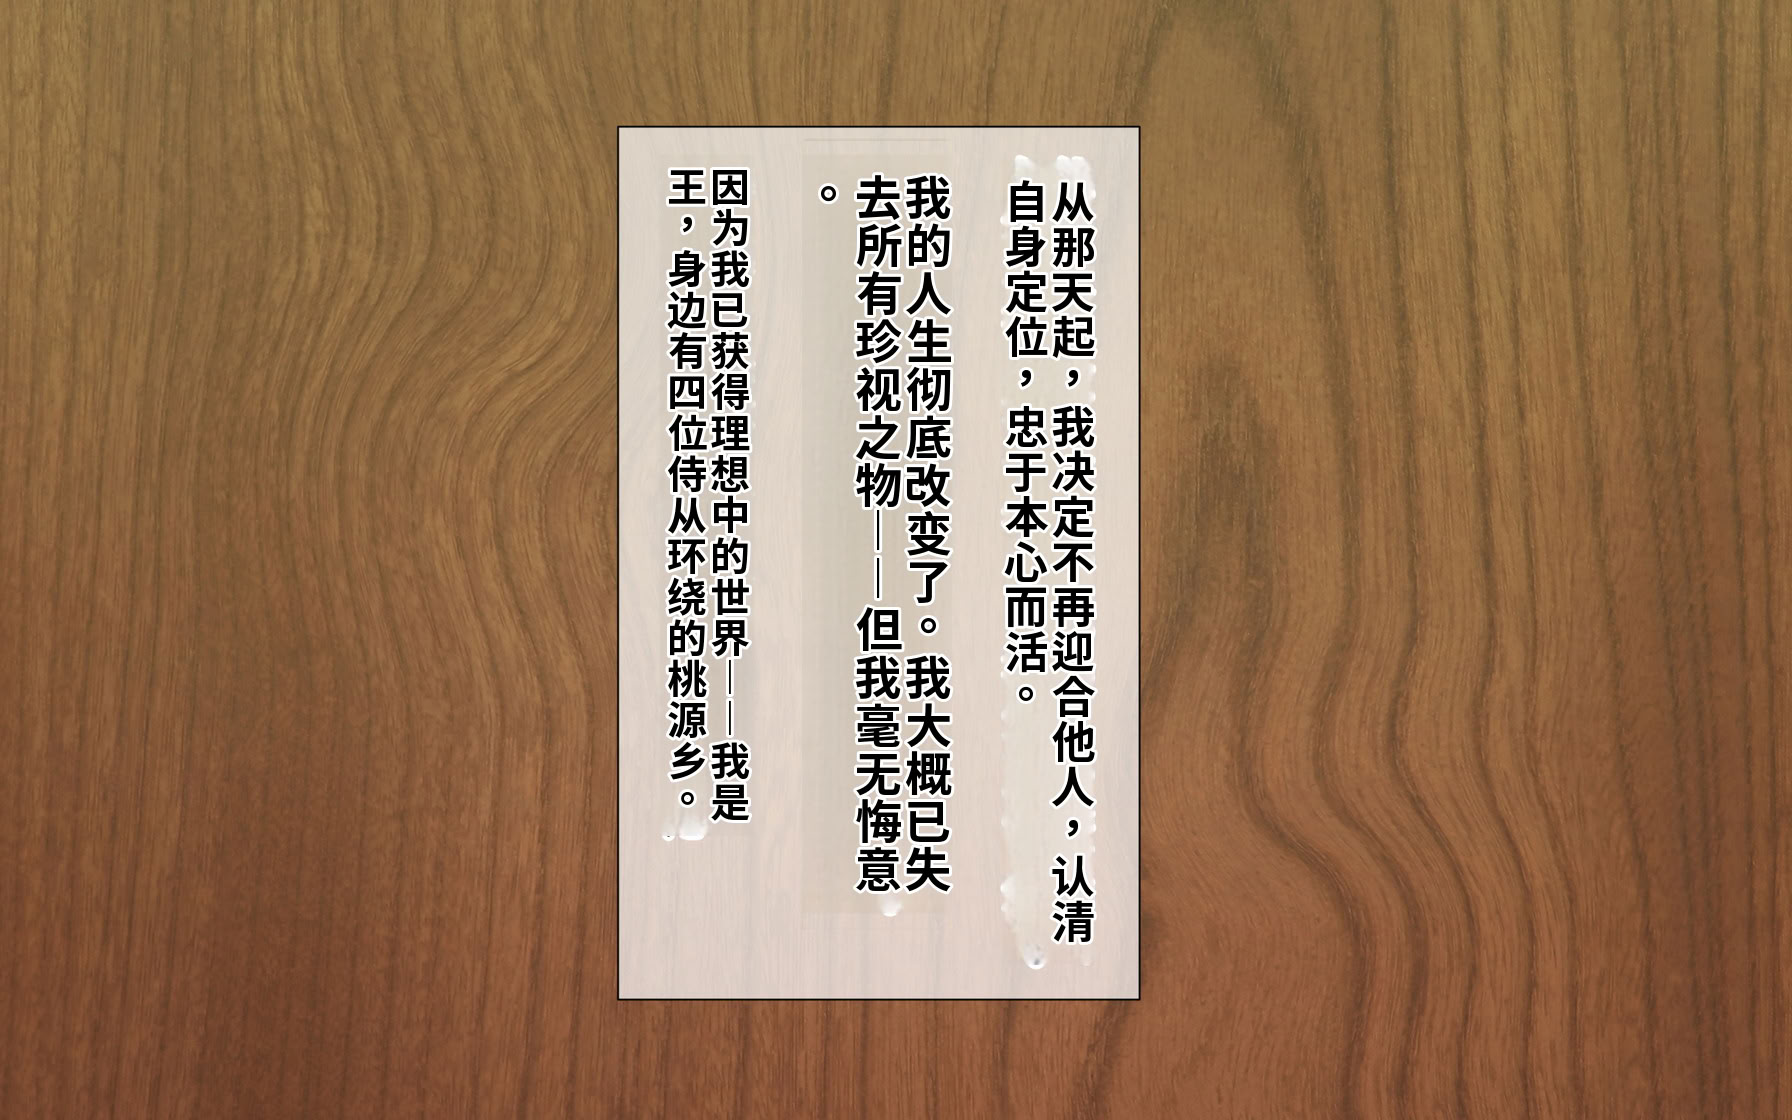 从那天起，我决定不再迎合他人，认清
自身定位，忠于本心而活。
我的人生彻底改变了。我大概已失
去所有珍视之物——但我毫无悔意
。
因为我已获得理想中的世界——我是
王，身边有四位侍从环绕的桃源乡。